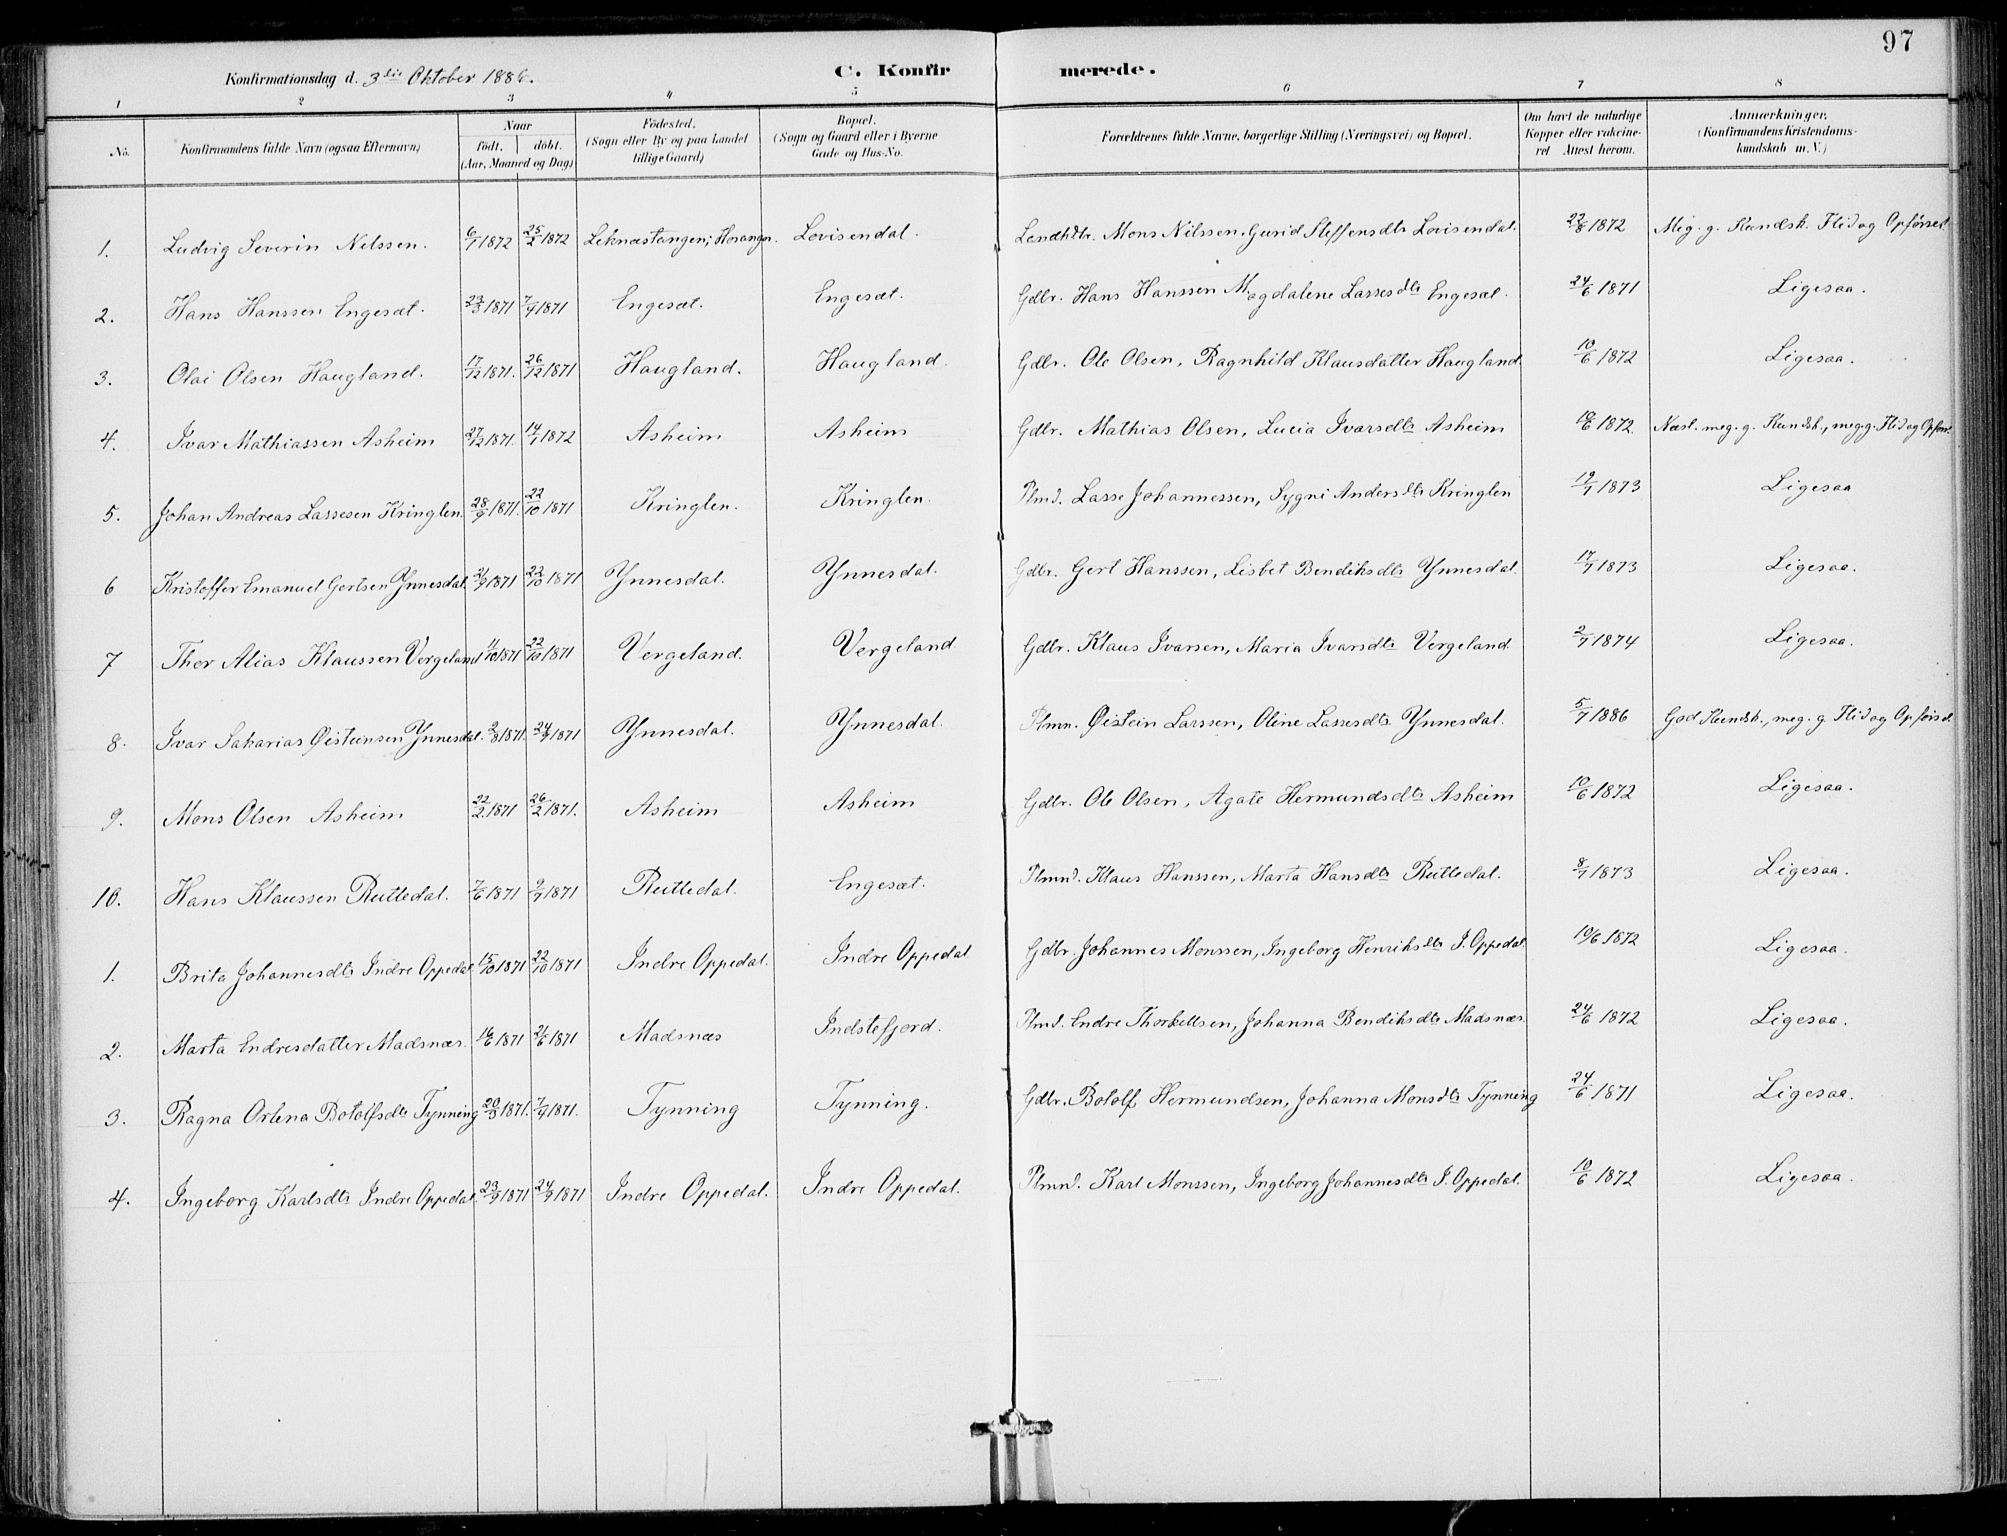 97
Konfirmationsdag d. 3die Oktober 1886. C. Konfirmerede.
1 2 3 4 5 6 7 8
No. Konfirmandens fulde Navn (ogsaa Efternavn) Naar født, døbt. (Aar, Maaned og Dag) Fødested. (Sogn eller By og paa Landet tillige Gaard) Bopæl. (Sogn og Gaard eller i Byerne Gade og Hus-No. Forældrenes fulde Navne, borgerlige Stilling (Næringsvei) og Bopæl. Om havt de naturlige Kopper eller vakcineret Attest herom. Anmærkninger, (Konfirmandens Kristendomskundskab m. V.)
1. Ludvig Severin Nilssen. 6/1 1872 25/2 1872 Leknæstangen; Hosanger. Lovisendal. Mons Nilssen, Gurid Steffensdtr Lovisendal. 22/8 1872 Meg. g. Kundsk. Flid og Opførsel.
2. Hans Hanssen Engesæt. 23/8 1871 7/9 1871 Engesæt. Engesæt. Gdbr. Hans Hanssen Magdalene Lassesdtr Engesæt. 24/6 1871 Ligesaa.
3. Olai Olsen Haugland. 17/12 1871. 26/12 1871 Haugland. Haugland. Gdbr. Ole Olsen, Ragnhild Klausdatter Haugland. 10/6 1872 Ligesaa.
4. Ivar Mathiassen Asheim 27/12 1871. 14/1 1872 Asheim Asheim Gdbr. Mathias Olsen, Lucia Ivarsdtr Asheim 10/6 1872. Næst. meg. g. Kundsk., meg. g. Flid og Opførs.
5. Johan Andreas Lassesen Kringlen. 28/9 1871. 22/10 1871 Kringlen. Kringlen. Plmd. Lasse Johannessen, Sygni Andersdtr Kringlen 19/7 1873 Ligesaa
6 Kristoffer Emanuel Gertsen Ynnesdal. 21/9 1871 22/10 1871 Ynnesdal. Ynnesdal. Gdbr. Gert Hanssen, Lisbet Bendiksdtr Ynnesdal. 17/7 1873 Ligesaa.
7 Thor Alias Klaussen Vergeland 11/10 1871 22/10 1871 Vergeland. Vergeland Gdbr. Klaus Ivarsen, Maria Ivarsdtr Vergeland. 2/7 1874 Ligesaa.
8. Ivar Sakarias Øisteinsen Ynnesdal. 1871. 24/9 1871 Ynnesdal. Ynnesdal. Plmn. Øistein Larssen, Oline Lassesdtr Ynnesdal. 5/7 1886 God Kundsk., meg. g. Flid og Opførsel.
9. Mons Olsen Asheim 22/2. 1871 26/2 1871. Asheim Asheim Gdbr. Ole Olsen, Agate Hermundsdtr Asheim 10/6 1872 Ligesaa.
10. Hans Klaussen Rutledal. 7/6 1871 9/7 1871 Rutledal. Engesæt. Plmnd. Klaus Hanssen, Marta Hansdtr Rutledal. 8/7 1873 Ligesaa.
1. Brita Johannesdtr Indre Oppedal. 15/10 1871 22/10 1871 Indre Oppedal. Indre Oppedal Gdbr. Johannes Monssen, Ingeborg Henriksdtr I. Oppedal. 10/6 1872 Ligesaa.
2. Marta Endresdatter Madsnæs. 16/6 1871 1871 Madsnæs Indstefjord. Plmd. Endre Thorkellsen, Johanna Bendiksdtr Madsnæs. 24/6 1872 Ligesaa.
3. Ragna Orlena Botolfsdtr Tynning 20/8 1871. 7/9 1871. Tynning Tynning. Gdbr. Botolf Hermundsen, Johanna Monsdtr Tynning 24/6 1871 Ligesaa.
4. Ingeborg Karlsdtr Indre Oppedal. 23/9 1871 24/9 1871 Indre Oppedal. Indre Oppedal. Plmnd. Karl Monssen, Ingeborg Johannesdtr I. Oppedal. 10/6 1872 Ligesaa.